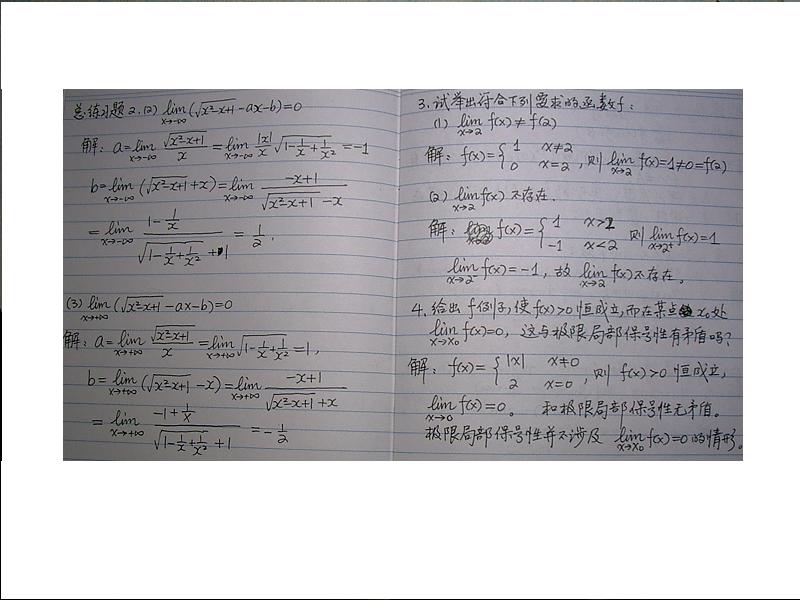 总练习题2.(2) lim x→-∞ (√x²-x+1 -ax-b)=0
解: a=lim x→-∞ √x²-x+1 / x = lim x→-∞ |x|/x √1-1/x+1/x² =-1
b=lim x→-∞ (√x²-x+1 +x)=lim x→-∞ -x+1 / √x²-x+1 -x
= lim x→-∞ 1-1/x / √1-1/x+1/x² +1 = 1/2.
(3) lim x→+∞ (√x²-x+1 -ax-b)=0
解: a=lim x→+∞ √x²-x+1 / x = lim x→+∞ √1-1/x+1/x² =1,
b=lim x→+∞ (√x²-x+1 -x)=lim x→+∞ -x+1 / √x²-x+1 +x
= lim x→+∞ -1+1/x / √1-1/x+1/x² +1 = -1/2
3.试举出符合下列要求的函数f:
(1) lim x→2 f(x)≠f(2)
解: f(x)={ 1 x≠2 0 x=2 , 则 lim x→2 f(x)=1≠0=f(2)
(2) lim x→2 f(x)不存在.
解: f(x)={ 1 x>2 -1 x<2 则 lim x→2⁺ f(x)=1
lim x→2⁻ f(x)=-1, 故 lim x→2 f(x)不存在。
4.给出f例子,使f(x)>0恒成立,而在某点x₀处
lim x→x₀ f(x)=0, 这与极限局部保号性有矛盾吗?
解: f(x)={ |x| x≠0 2 x=0 , 则 f(x)>0恒成立,
lim x→0 f(x)=0。 和极限局部保号性无矛盾。
极限局部保号性并不涉及 lim x→x₀ f(x)=0的情形。